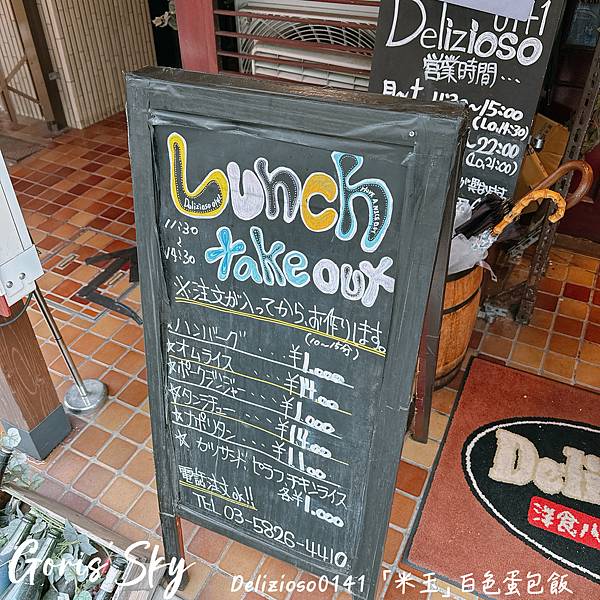 0141
Delizioso
営業時間...
15:00
(Lo,14:30)
~22:00
(Lo,21:00)
Lunch
Delizioso 0141
HAVE A NICE DAY
11:30
~
14:30
take out
※注文が入ってから、お作りします。
(10~15分)
★ハンバーグ ..... ¥1,000
★オムライス ..... ¥1400
★ポークジンジャー .... ¥1,000
★タンシチュー .... ¥1400
★ナポリタン ..... ¥1100
★カツサンド、ピラフ、チキンライス
各¥1,000
電話注文ok!!
TEL 03-5826-4410
Deli
洋食バ
Goris Sky
Delizioso0141「米玉」百色蛋包飯